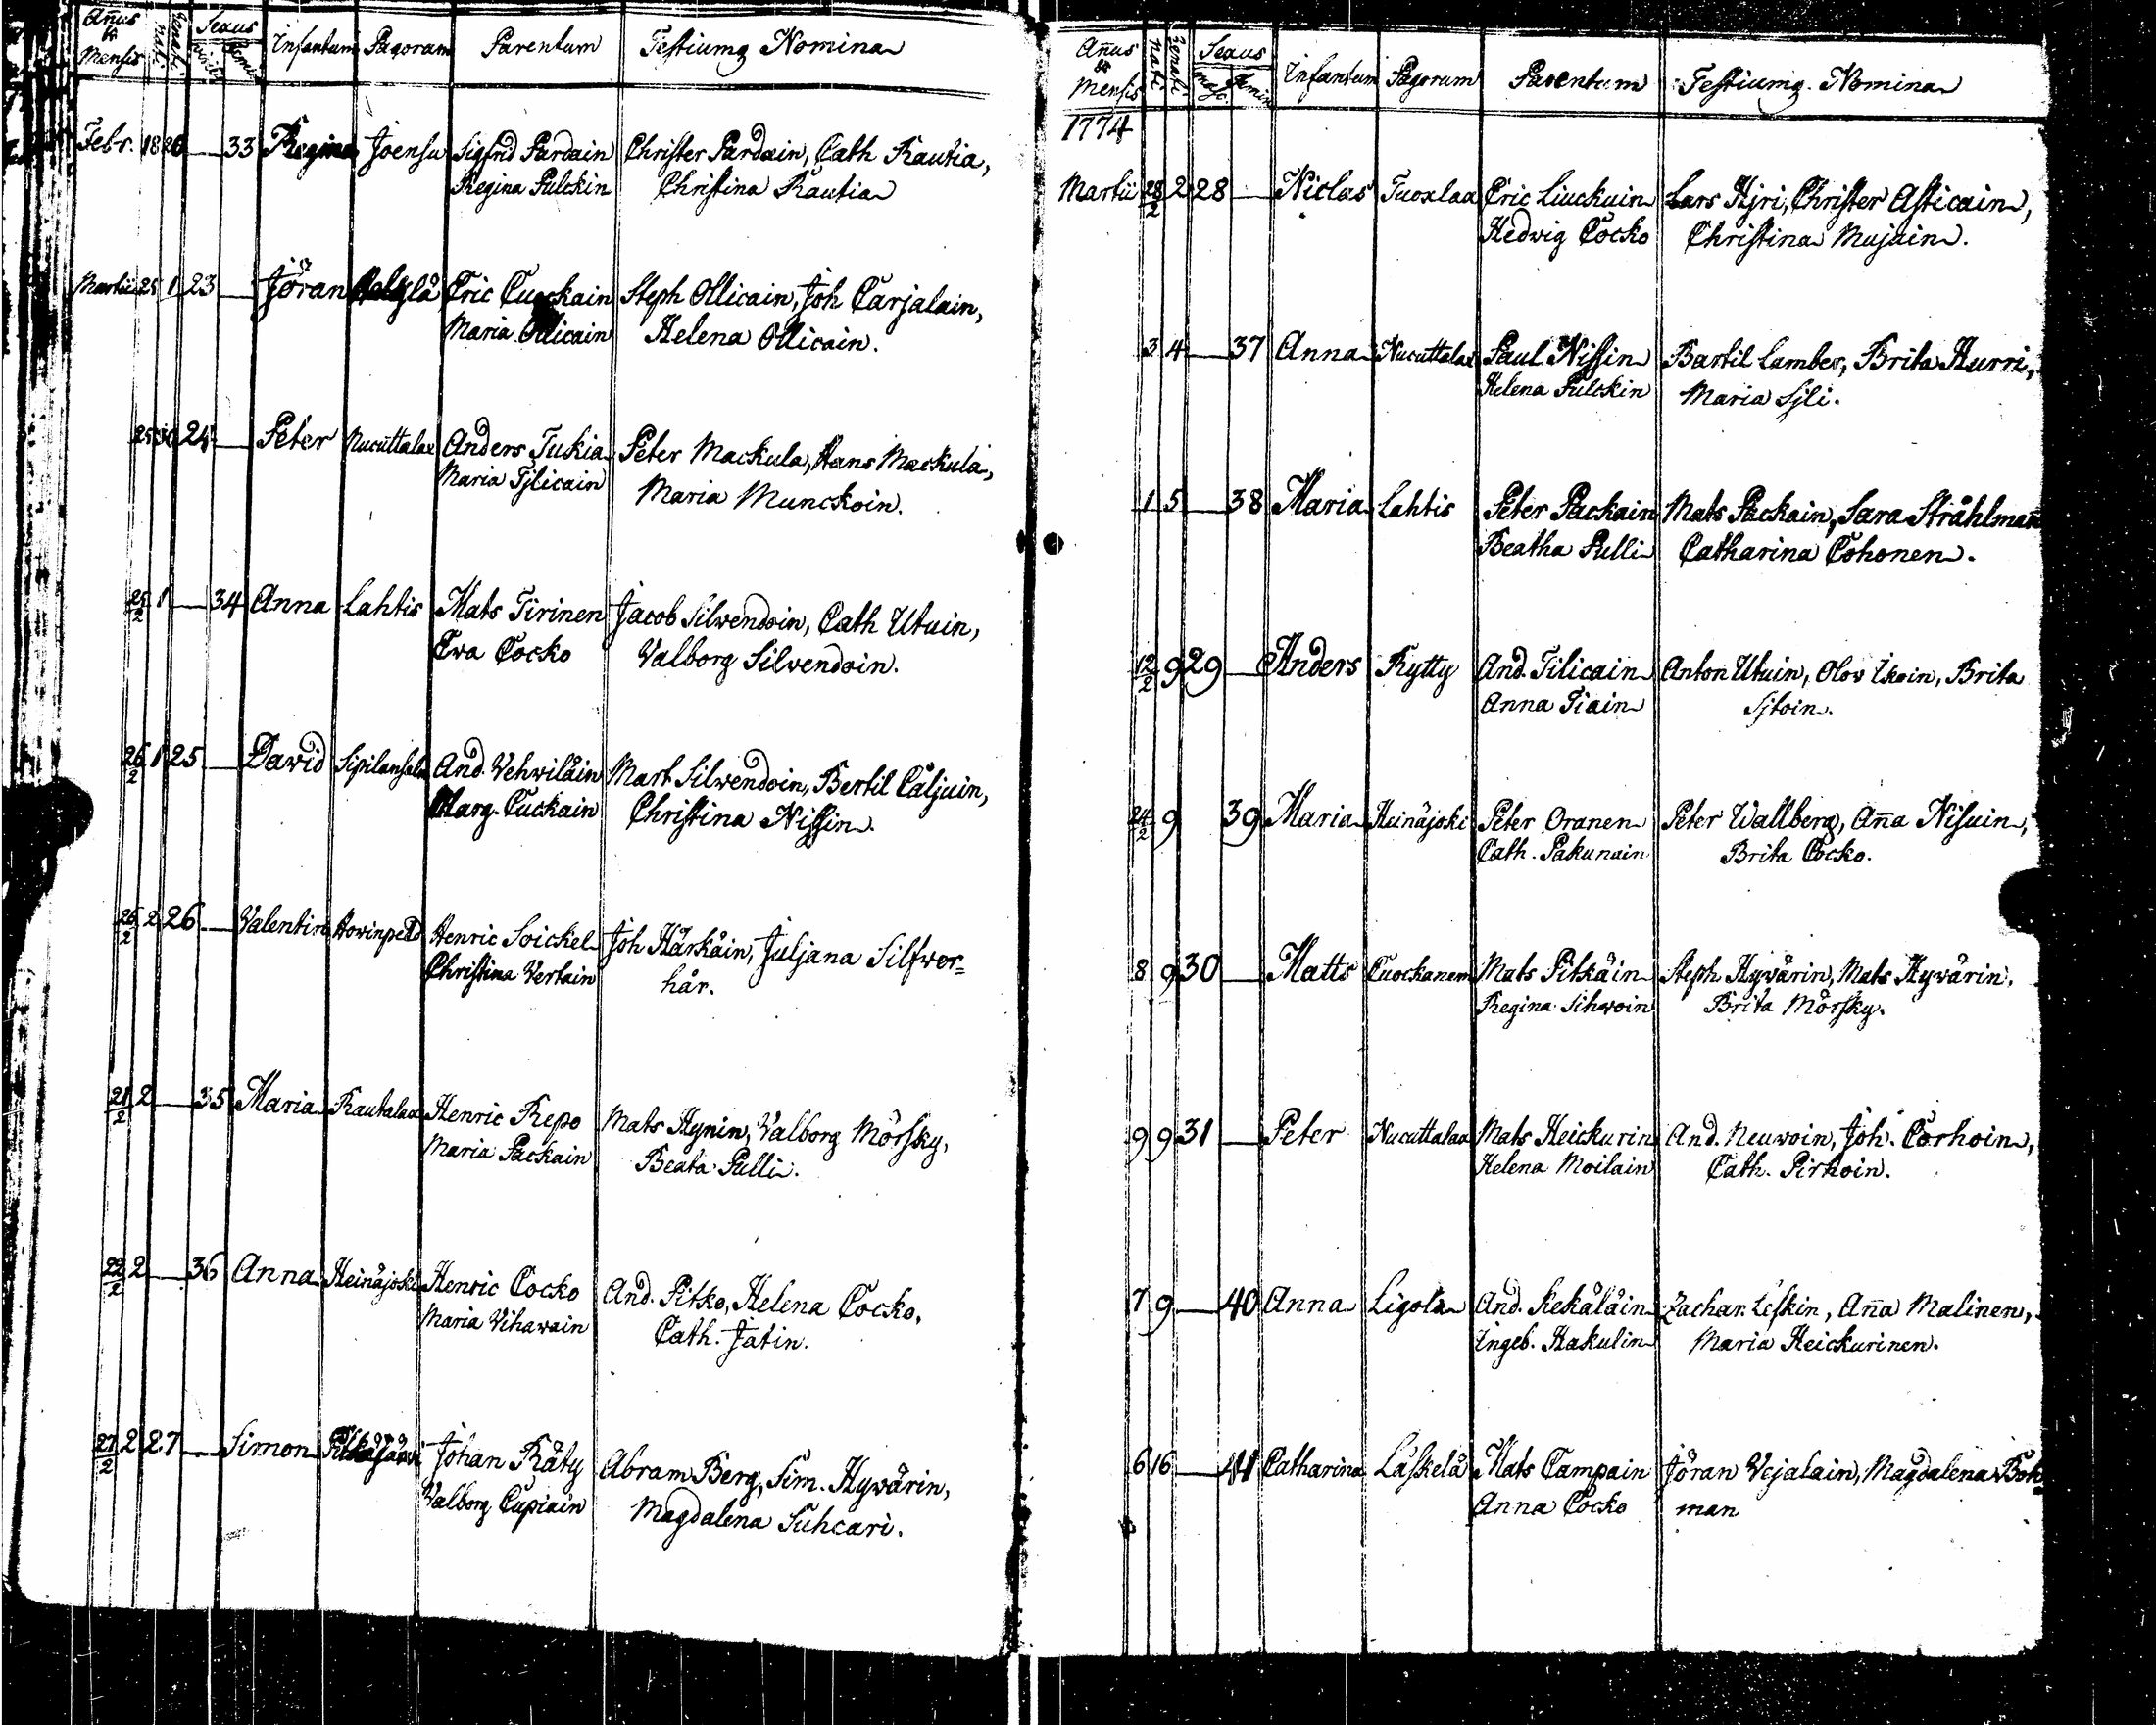 Añus & Mensis Nati Renati Sexus Virilis Femin Infantum Pagorum Parentum Testiumq Nomina
Febr. 18 20 — 33 Regina Joensu Sigfrid Pardain Christer Pardain, Cath Rautia,
Regina Pulckin Christina Rautia
Martii 25 1 23 — Jöran Eric Cuockain Steph Ollicain, Joh Carjalain,
Maria Ollicain Helena Ollicain.
25 30 24 — Peter Nucuttalax Anders Tukia Peter Mackula, Hans Mackula,
Maria Tjlicain Maria Munckoin.
25/2 1 — 34 Anna Lahtis Mats Tirinen Jacob Silvendoin, Cath Utuin,
Eva Cocko Valborg Silvendoin.
26/2 1 25 — David Sipilansalo And. Vehviläin Mart Silvendoin, Bertil Caljuin,
Marg. Cuckain Christina Nissin.
26/2 2 26 — Valentin Hovinpeldo Henric Soickel Joh Härkäin, Juljana Silfver=
Christina Vertain hår.
21/2 2 — 35 Maria Rautalax Henric Repo Mats Hynin, Valborg Mörsky,
Maria Packain Beata Pulli.
22/2 2 — 36 Anna Heinäjoki Henric Cocko And. Pitko, Helena Cocko,
Maria Vihavain Cath. Jatin.
27/2 2 27 — Simon Pitkäjärvi Johan Räty Abram Berg, Sim. Hyvärin,
Valborg Cupiain Magdalena Suhcari.
Añus & Mensis Nati Renati Sexus Masc. Femin Infantum Pagorum Parentum Testiumq. Nomina
1774
Martii 28/2 2 28 — Niclas Tuoxlax Eric Liuckuin Lars Hjri, Christer Asticain,
Hedvig Cocko Christina Mujain.
3 4 — 37 Anna Nucuttalax Paul Nissin Bartil Lamber, Brita Hurri,
Helena Pulckin Maria Sjli.
1 5 — 38 Maria Lahtis Peter Packain Mats Packain, Sara Stråhlmañ
Beatha Pulli Catharina Cohonen.
12/2 9 29 — Anders Rytty And. Tilicain Anton Utuin, Olov Ikoin, Brita
Anna Tiain Sjtoin.
24/2 9 39 Maria Heinäjoki Peter Oranen Peter Wallberg, Aña Nisuin,
Cath. Pakunain Brita Cocko.
8 9 30 — Matts Cuockanem Mats Pitkäin Steph. Hyvärin, Mats Hyvärin.
Regina Sihvoin Brita Mörsky.
9 9 31 — Peter Nucuttalax Mats Heickurin And. Neuvoin, Joh. Corhoin,
Helena Moilain Cath. Pirhoin.
7 9 — 40 Anna Ligola And. Kekäläin Zachar. Leskin, Aña Malinen,
Ingeb. Hakulin Maria Heickurinen.
6 16 — 41 Catharina Läskelä Mats Campain Jöran Vejalain, Magdalena Boh=
Anna Cocko man